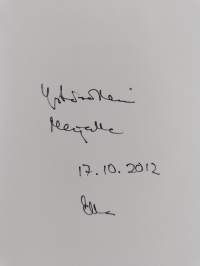 Ystävälleni
Merjalle
17.10.2012